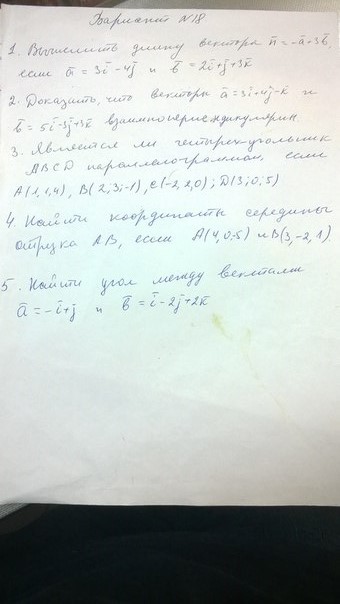 Вариант N18
1. Вычислить длину вектора n̄ = -ā-3b̄,
если ā = 3ī-4j̄ и b̄ = 2ī+j̄+3k̄
2. Доказать, что векторы ā=3ī+4j̄-k̄ и
b̄ = 5ī-3j̄+3k̄ взаимноперпендикулярн.
3. Является ли четырех-угольник
ABCD параллелограммом, если
A(1,1,4), B(2;3;-1), C(-2,2,0); D(3;0;5)
4. Найти координаты середины
отрезка AB, если A(4,0,-5) и B(3,-2,1).
5. Найти угол между векторами
ā = -ī+j̄ и b̄ = ī-2j̄+2k̄